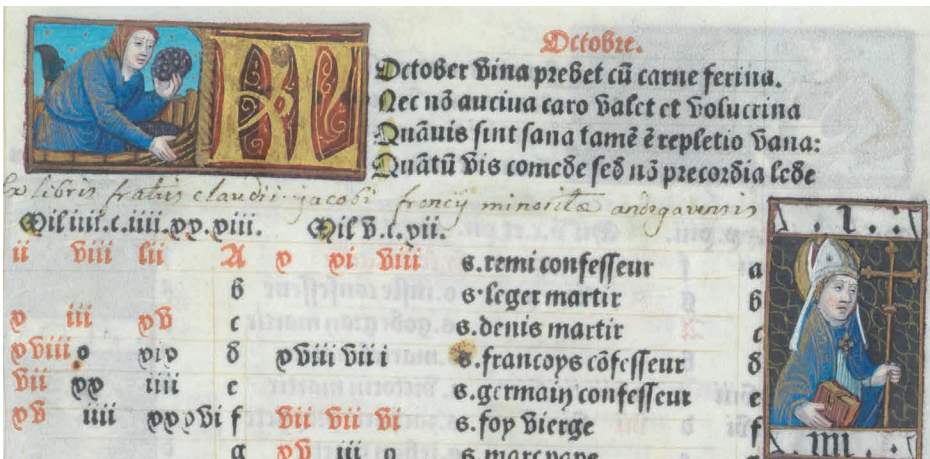 Octobre.
KL
October vina prebet cū carne ferina.
Nec nō aucina caro valet et volucrina
Quāuis sint sana tamē ē repletio vana:
Quātū vis comede sed nō precordia lede
Ex libris fratris claudii jacobi minoritæ andegavensis
Mil iiii.c.iiii.xx.xviii. Mil v.c.xvii.
.I.
ii viii lii A x xi viii s.remi confesseur a
b s.leger martir b
x iii xv c s.denis martir c
xviii o xix d xviii vii i s.francoys cōfesseur d
vii xx iiii e s.germain confesseur e
xv iiii xxxvi f vii vii vi s.foy vierge f
.IIII.
g xv iii o s.marc pape